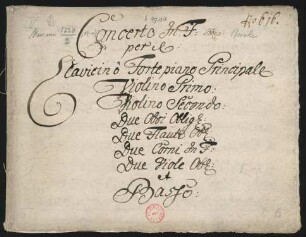 Concerto In F:
per il
Clavicino ò Fortepiano Principale
Violino Primo:
Violino Secondo:
Due Oboi Oblig:
Due Flauti Obl:
Due Corni In F:
Due Viole Obl:
et
Basso: